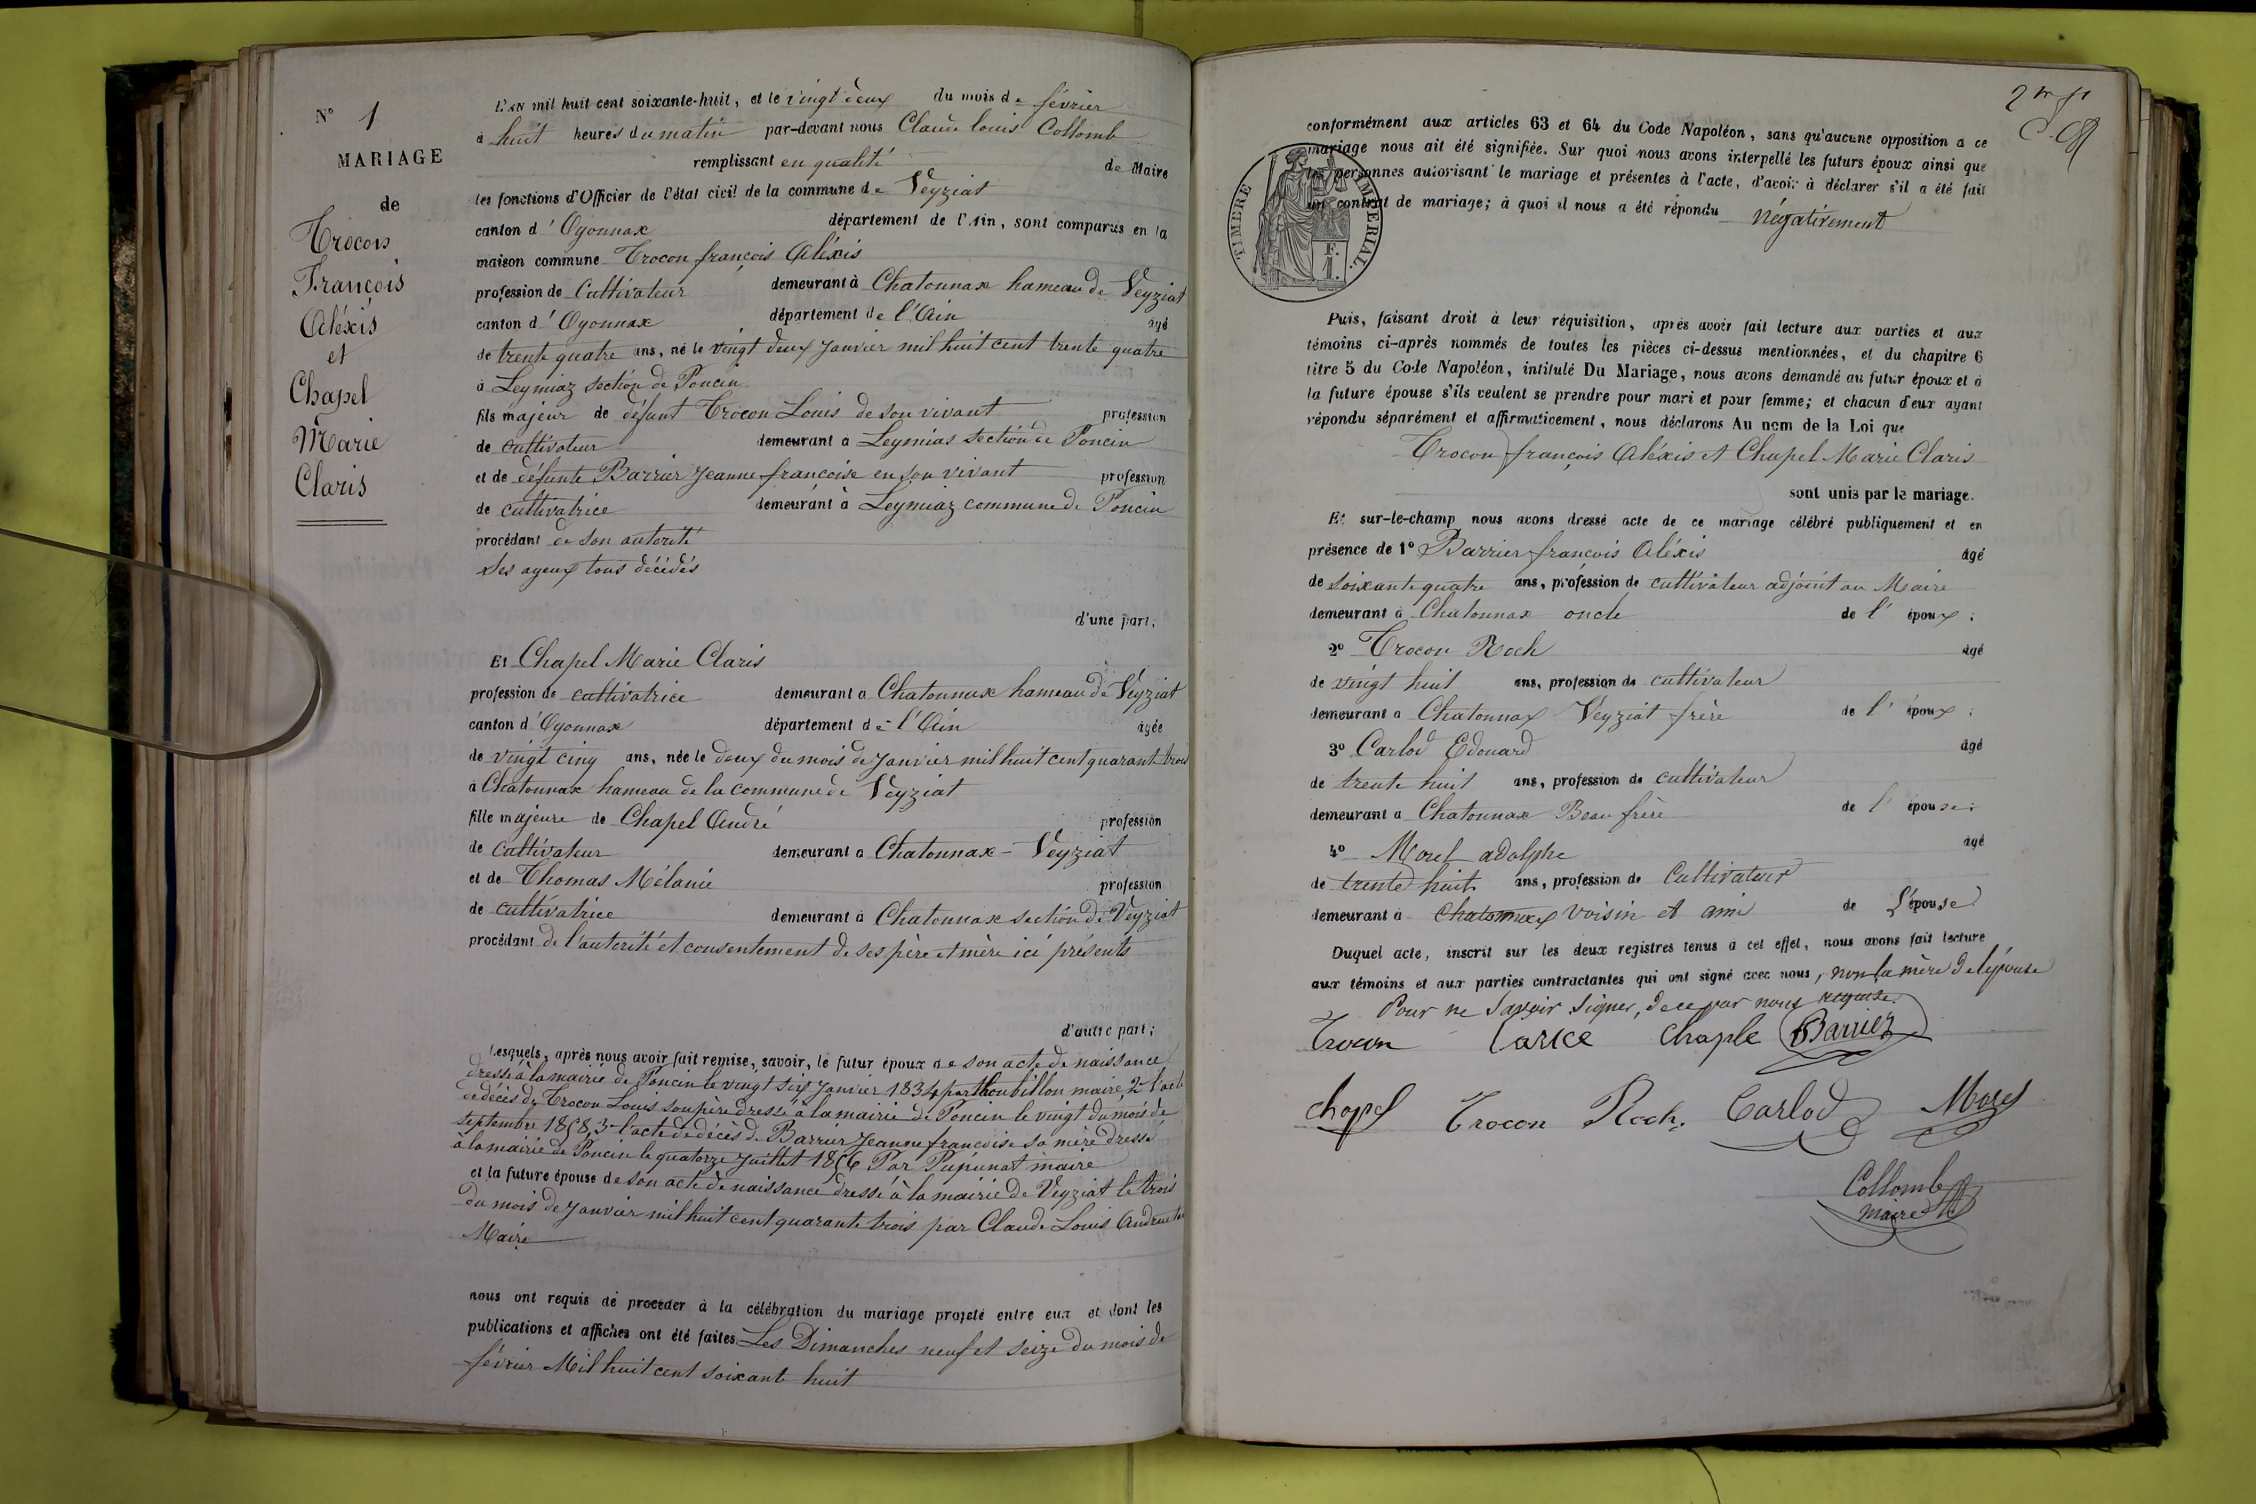 N° 1
MARIAGE
de
Trocon
François
Aléxis
et
Chapel
Marie
Claris
L'AN mil huit cent soixante-huit, et le vingt deux du mois de février
à huit heures du matin par-devant nous Claude Louis Collomb
remplissant en qualité de Maire
les fonctions d'Officier de l'état civil de la commune de Veyziat
canton d' Oyonnax département de l'Ain, sont comparus en la
maison commune Trocon françois Aléxis
profession de Cultivateur demeurant à Chatonnax hameau de Veyziat
canton d' Oyonnax département de l'Ain âgé
de trente quatre ans, né le vingt deux Janvier mil huit cent trente quatre
à Leymiaz section de Poncin
fils majeur de défunt Trocon Louis de son vivant profession
de cultivateur demeurant à Leymias section de Poncin
et de défunte Barrier Jeanne francoise en son vivant profession
de cultivatrice demeurant à Leymiaz commune de Poncin
procédant de son autorité
Ses ayeux tous décédés
d'une part;
Et Chapel Marie Claris
profession de cultivatrice demeurant à Chatonnax hameau de Veyziat
canton d' Oyonnax département de l'Ain âgée
de vingt cinq ans, née le deux du mois de Janvier mil huit cent quarant trois
à Chatonnax hameau de la commune de Veyziat
fille majeure de Chapel André profession
de cultivateur demeurant à Chatonnax - Veyziat
et de Thomas Mélanie profession
de cultivatrice demeurant à Chatonnax section de Veyziat
procédant de l'autorité et consentement de ses père et mère ici présents
d'autre part;
Lesquels, après nous avoir fait remise, savoir, le futur époux de son acte de naissance
dressé à la mairie de Poncin le vingt six Janvier 1834 par Thoubillon maire, 2° l'acte
de décès de Trocon Louis son père dressé à la mairie de Poncin le vingt du mois de
septembre 1858, 3° l'acte de décès de Barrier Jeanne francoise sa mère dressé
à la mairie de Poncin le quatorze Juillet 1856 Par Pupunat maire
et la future épouse de son acte de naissance dressé à la mairie de Veyziat le trois
du mois de Janvier mil huit cent quarante trois par Claude Louis
Maire
nous ont requis de procéder à la célébration du mariage projeté entre eux et dont les
publications et affiches ont été faites Les Dimanches neuf et seize du mois de
février Mil huit cent soixante huit
conformément aux articles 63 et 64 du Code Napoléon, sans qu'aucune opposition a ce
mariage nous ait été signifiée. Sur quoi nous avons interpellé les futurs époux ainsi que
les personnes autorisant le mariage et présentes à l'acte, d'avoir à déclarer s'il a été fait
un contrat de mariage; à quoi il nous a été répondu Négativement
TIMBRE IMPÉRIAL.
F.
1.
Puis, faisant droit à leur réquisition, après avoir fait lecture aux parties et aux
témoins ci-après nommés de toutes les pièces ci-dessus mentionnées, et du chapitre 6
titre 5 du Code Napoléon, intitulé Du Mariage, nous avons demandé au futur époux et à
la future épouse s'ils veulent se prendre pour mari et pour femme; et chacun d'eux ayant
répondu séparément et affirmativement, nous déclarons Au nom de la Loi que
Trocon françois Aléxis et Chapel Marie Claris
sont unis par le mariage.
Et sur-le-champ nous avons dressé acte de ce mariage célébré publiquement et en
présence de 1° Barrier francois Aléxis âgé
de soixante quatre ans, profession de cultivateur adjoint au Maire
demeurant à Chatonnax oncle de l' époux;
2° Trocon Roch âgé
de vingt huit ans, profession de cultivateur
demeurant à Chatonnax Veyziat frère de l' époux;
3° Carlod Edouard âgé
de trente huit ans, profession de cultivateur
demeurant à Chatonnax Beau frère de l' épouse;
4° Morel adolphe âgé
de trente huit ans, profession de Cultivateur
demeurant à Chatonnax voisin et ami de l'épouse
Duquel acte, inscrit sur les deux registres tenus à cet effet, nous avons fait lecture
aux témoins et aux parties contractantes qui ont signé avec nous, non la mère de l'épouse
Pour ne savoir signer, de ce par nous requise.
Trocon Larice Chaple Barrier
Chapel Trocon Roch. Carlod Morel
Collomb
maire